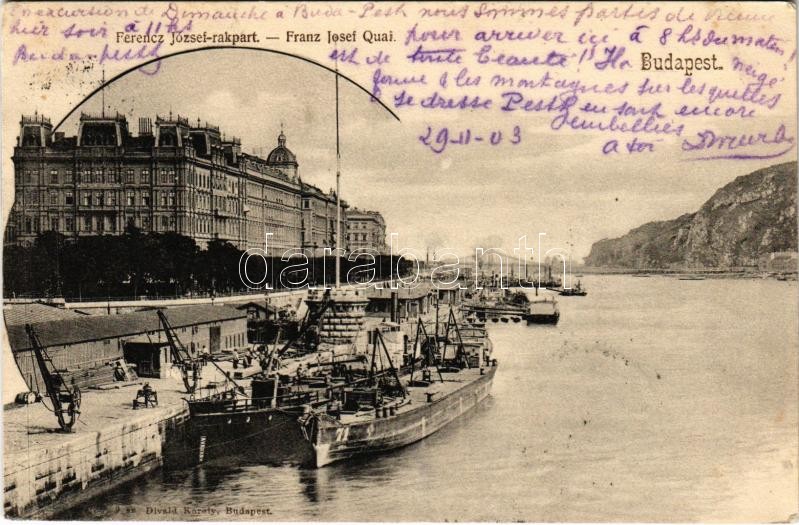 excursion de Dimanche à Buda-Pesth nous sommes partis de Vienne
hier soir à 11 hs pour arriver ici à 8 hs du matin!
Ferencz József-rakpart. — Franz Josef Quai.
Budapesth est de toute beauté!!
Budapest.
neige
et les montagnes sur lesquelles
se dresse Pesth en sont encore
29-11-03
embellies
à toi
darabanth
Divald Károly, Budapest.